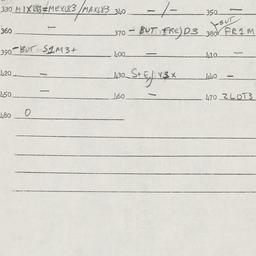 330 MIXV83=MEXV83/MAXV83 340 — / — 350 —
360 — 370 — BUT: FRC)D3 380 BUT FR1M
390 — BUT: S1M3+ 400 — 410 —
420 — 430 S+E/: V3X 440 —
450 — 460 — 470 2LDT3
480 0